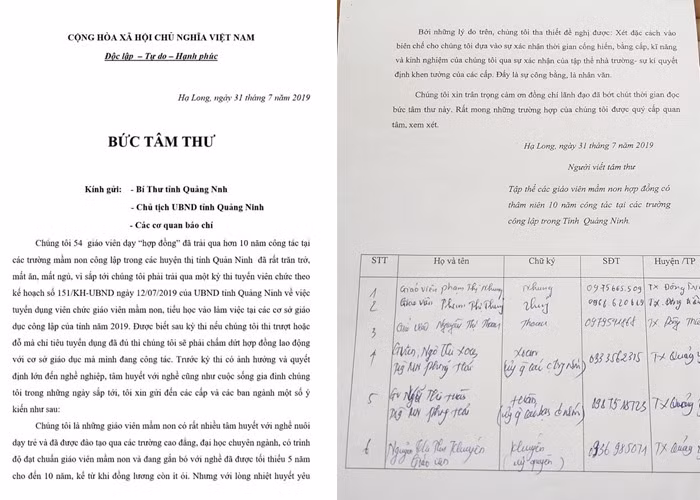 CỘNG HÒA XÃ HỘI CHỦ NGHĨA VIỆT NAM
Độc lập – Tự do – Hạnh phúc
Hạ Long, ngày 31 tháng 7 năm 2019
BỨC TÂM THƯ
Kính gửi: - Bí Thư tỉnh Quảng Nnh
- Chủ tịch UBND tỉnh Quảng Ninh
- Các cơ quan báo chí
Chúng tôi 54 giáo viên dạy “hợp đồng” đã trải qua hơn 10 năm công tác tại
các trường mầm non công lập trong các huyện thị tỉnh Quản Ninh đã rất trăn trở,
mất ăn, mất ngủ, vì sắp tới chúng tôi phải trải qua một kỳ thi tuyển viên chức theo
kế hoạch số 151/KH-UBND ngày 12/07/2019 của UBND tỉnh Quảng Ninh về việc
tuyển dụng viên chức giáo viên mầm non, tiểu học vào làm việc tại các cơ sở giáo
dục công lập của tỉnh năm 2019. Được biết sau kỳ thi nếu chúng tôi thi trượt hoặc
đỗ mà chỉ tiêu tuyển dụng đã đủ thì chúng tôi sẽ phải chấm dứt hợp đồng lao động
với cơ sở giáo dục mà mình đang công tác. Trước kỳ thi có ảnh hưởng và quyết
định lớn đến nghề nghiệp, tâm huyết với nghề cũng như cuộc sống gia đình chúng
tôi trong những ngày sắp tới, tôi xin gửi đến các cấp và các ban ngành một số ý
kiến như sau:
Chúng tôi là những giáo viên mầm non có rất nhiều tâm huyết với nghề nuôi
dạy trẻ và đã được đào tạo qua các trường cao đẳng, đại học chuyên ngành, có trình
độ đạt chuẩn giáo viên mầm non và đang gắn bó với nghề đã được tối thiểu 5 năm
cho đến 10 năm, kể từ khi đồng lương còn ít ỏi. Nhưng với lòng nhiệt huyết yêu
Bởi những lý do trên, chúng tôi tha thiết đề nghị được: Xét đặc cách vào
biên chế cho chúng tôi dựa vào sự xác nhận thời gian cống hiến, bằng cấp, kĩ năng
và kinh nghiệm của chúng tôi qua sự xác nhận của tập thể nhà trường- sự kí quyết
định khen tưởng của các cấp. Đấy là sự công bằng, là nhân văn.
Chúng tôi xin trân trọng cảm ơn đồng chí lãnh đạo đã bớt chút thời gian đọc
bức tâm thư này. Rất mong những trường hợp của chúng tôi được quý cấp quan
tâm, xem xét.
Hạ Long, ngày 31 tháng 7 năm 2019
Người viết tâm thư
Tập thể các giáo viên mầm non hợp đồng có
thâm niên 10 năm công tác tại các trường
công lập trong Tỉnh Quảng Ninh.
STT Họ và tên Chữ ký SĐT Huyện /TP
1 Giáo viên Phạm Thị Nhung Nhung 0975665509 TX Đông
2 Giáo viên Phạm Thị TX Đông
3 Giáo viên Nguyễn Thị Thanh Thanh TX Đông
4 Gviên, Ngô Thị Xoan Xoan 0933562315 TX Quảng
5 TX Quảng
6 Nguyễn Thị Khuyên Khuyên
Giáo viên